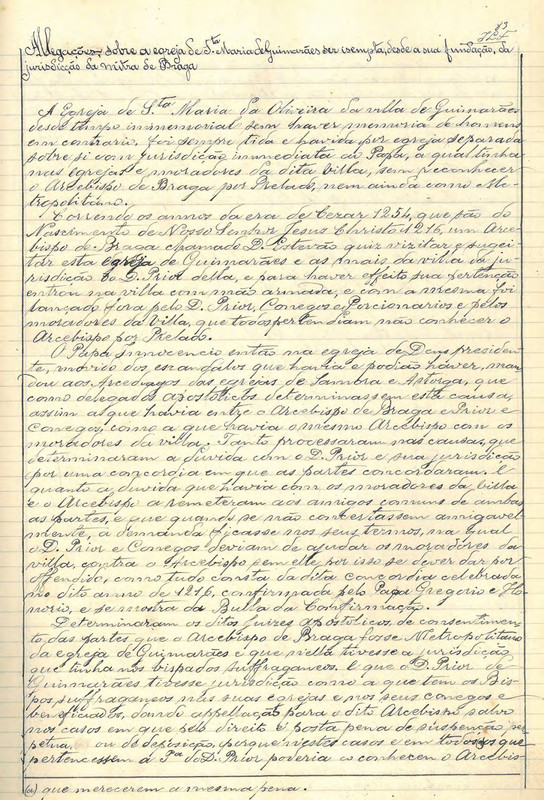 73
Allegações, sobre a egreja de S.ta Maria de Guimarães ser isempta, desde a sua fundação, da
jurisdicção da mitra de Braga
A Egreja de S.ta Maria da Oliveira da villa de Guimarães
desde tempo immemorial sem haver memoria de homens
em contrario, foi sempre tida e havida por egreja separada
sobre si com jurisdição immediata ao Papa, a qual tinha
nas egrejas e moradores da dita villa, sem reconhecer
o Arcebispo de Braga por Prelado, nem ainda como Me-
tropolitano.
Correndo os annos da era de Cezar 1254, que são do
Nascimento de Nosso Senhor Jesus Christo 1216, um Arce-
bispo de Braga chamado D. Estevão quiz vizitar e sugei-
tar esta egreja de Guimarães e as mais da villa da ju-
risdição do D. Prior della, e para haver effeito sua pertenção
entrou na villa com mão armada, e com a mesma foi
lançado fóra pelo D. Prior, Conegos e Porcionarios e pelos
moradores da villa, que todos pertendiam não conhecer o
Arcebispo por Prelado.
O Papa Innocencio então na egreja de Deus presiden-
te, movido dos escandalos que havia e podião haver, man-
dou aos Arcediagos das egrejas de Samora e Astorga, que
como delegados apostolicos determinassem esta causa,
assim a que havia entre o Arcebispo de Braga e Prior e
Conegos, como a que havia o mesmo Arcebispo com os
moradores da villa. Tanto processaram nas causas, que
determinaram a duvida com o D. Prior e sua jurisdição
por uma concordia em que as partes concordaram. E
quanto a duvida que havia com os moradores da villa
e o Arcebispo a remeteram aos amigos comuns de ambas
as partes, e que quando se não concertassem amigavel-
mente, a demanda ficasse nos seus termos, na qual
o D. Prior e Conegos deviam de ajudar os moradores da
villa, contra o Arcebispo sem elle por isso se dever dar por
offendido, como tudo consta da dita concordia celebrada
no dito anno de 1216, confirmada pelo Papa Gregorio e Ho-
norio, e se mostra da Bulla da Confirmação.
Determinaram os ditos juizes apostolicos de consentimen-
to, das partes que o Arcebispo de Braga fosse Metropolitano
da egreja de Guimarães e que nella tivesse a jurisdição
que tinha nos bispados suffraganeos. E que o D. Prior de
Guimarães tivesse jurisdição como a que tem os Bis-
pos suffraganeos nas suas egrejas e nos seus conegos e
beneficiados, dando appellação para o dito Arcebispo salvo
nos casos em que pelo direito é posta pena de suspenção per-
petua ou de deposição, porque n'estes casos e em todos os que
pertencessem á do D. Prior poderia conhecer o Arcebis-
(a) que merecerem a mesma pena.